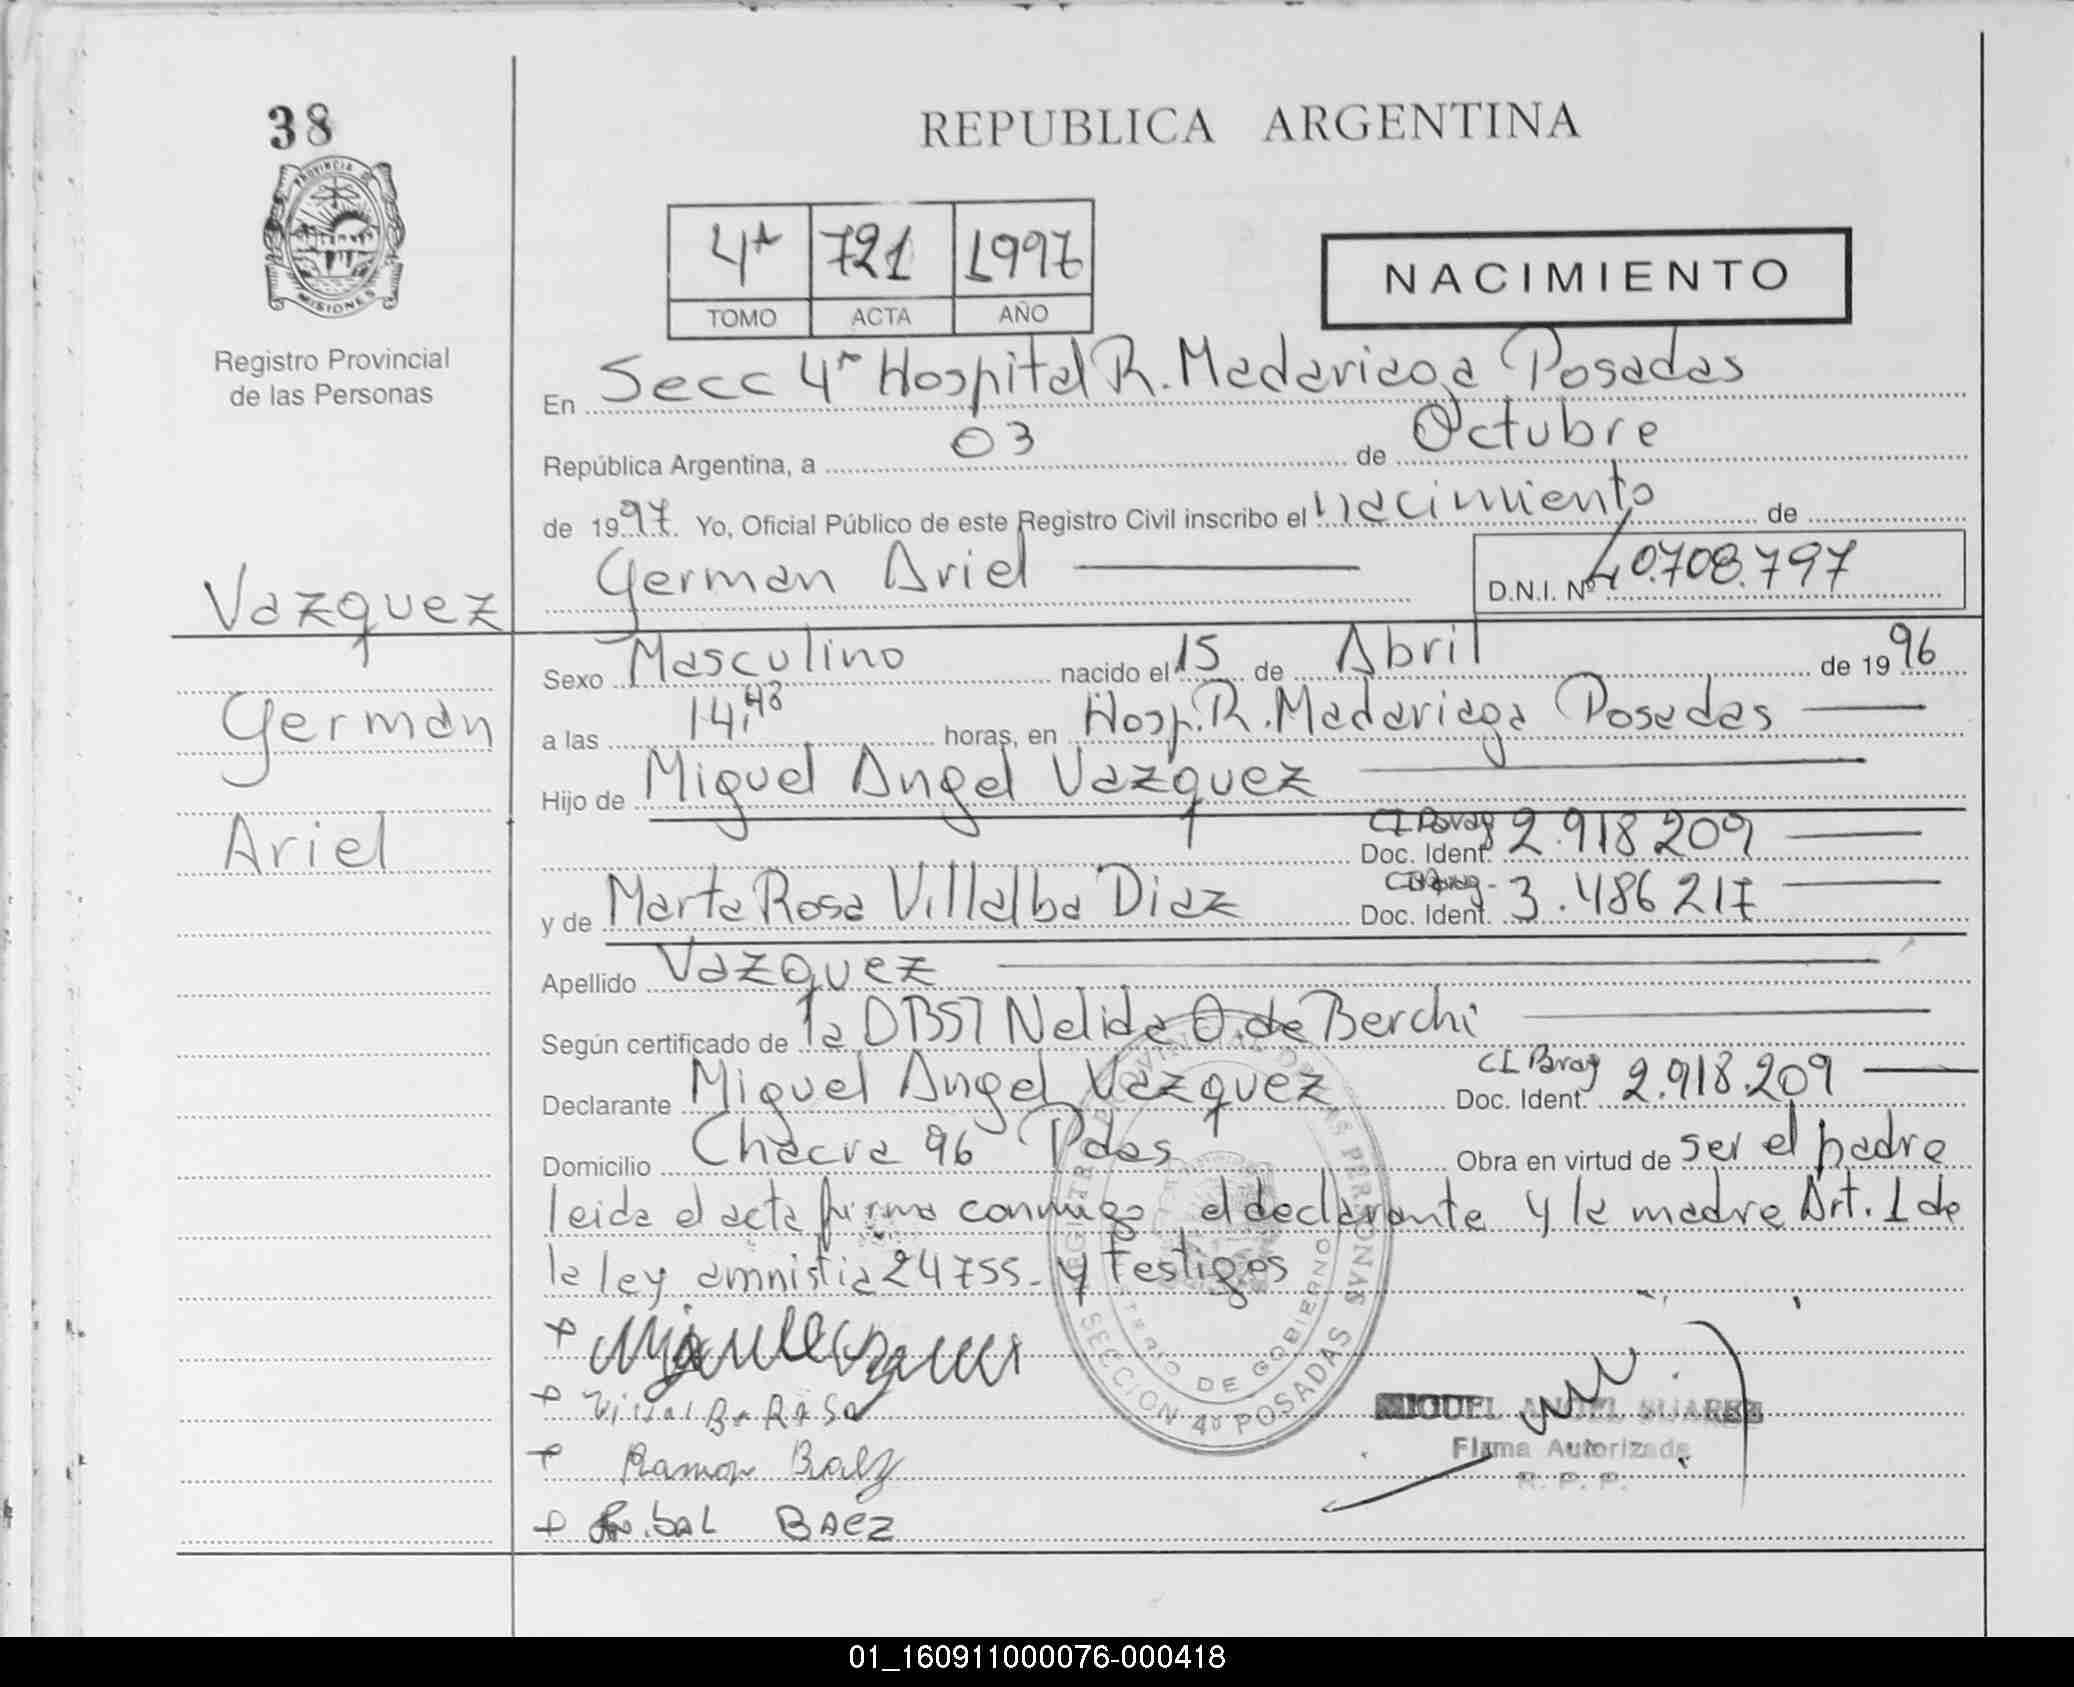 38
PROVINCIA DE
MISIONES
Registro Provincial
de las Personas
Vazquez
German
Ariel
REPUBLICA ARGENTINA
4ta 721 1997
TOMO ACTA AÑO
NACIMIENTO
En Secc 4ta Hospital R. Madariaga Posadas
República Argentina, a 03 de Octubre
de 1997. Yo, Oficial Público de este Registro Civil inscribo el nacimiento de
German Ariel D.N.I. Nº 40.708.797
Sexo Masculino nacido el 15 de Abril de 1996
a las 14,48 horas, en Hosp. R. Madariaga Posadas
Hijo de Miguel Angel Vazquez
CI Parag
Doc. Ident. 2.918209
y de Marta Rosa Villalba Diaz Doc. Ident. 3.486217
Apellido Vazquez
Según certificado de la OBST Nelida O. de Berchi
Declarante Miguel Angel Vazquez CI Parag Doc. Ident. 2.918.209
Domicilio Chacra 96 Pdas Obra en virtud de ser el padre
leida el acta firma conmigo el declarante y la madre Art. 1 de
la ley amnistia 24755- y testigos
Villalba Rosa
Ramon Baez
Anibal BAez
MIGUEL ANGEL SUAREZ
Firma Autorizada
R. P. P.
REGISTRO PROVINCIAL DE LAS PERSONAS
MINISTERIO DE GOBIERNO
SECCION 4ª POSADAS
01_160911000076-000418